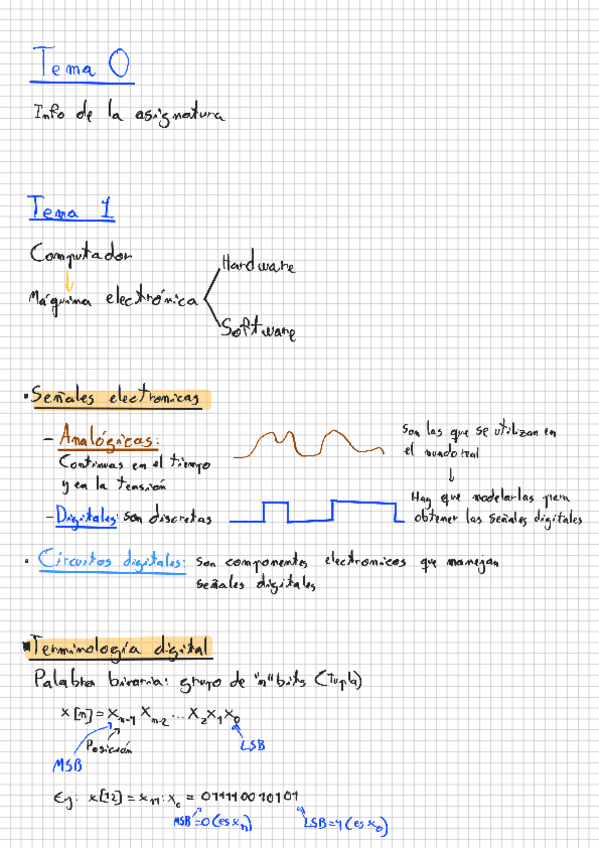 Tema 0
Info de la asignatura
Tema 1
Computador
Máquina electrónica
Hardware
Software
Señales electronicas
- Analógicas:
Continuas en el tiempo
y en la tensión
Son las que se utilizan en
el mundo real
↓
Hay que modelarlas para
obtener las señales digitales
- Digitales: son discretas
Circuitos digitales: son componentes electronicos que manejan
señales digitales
Terminología digital
Palabra binaria: grupo de "n" bits (tupla)
x[n] = Xn-1 Xn-2 ... X2 X1 X0
Posición
MSB
LSB
Ej: x[12] = x11:x0 = 011110010101
MSB=0 (es x11)
LSB=1 (es x0)